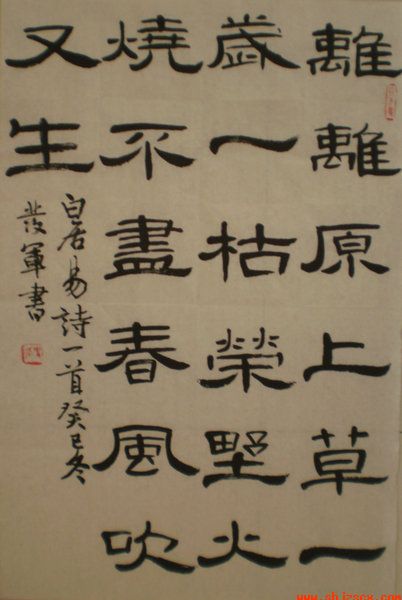 離離原上草一
歲一枯榮野火
燒不盡春風吹
又生
白居易詩一首癸巳冬
發軍書